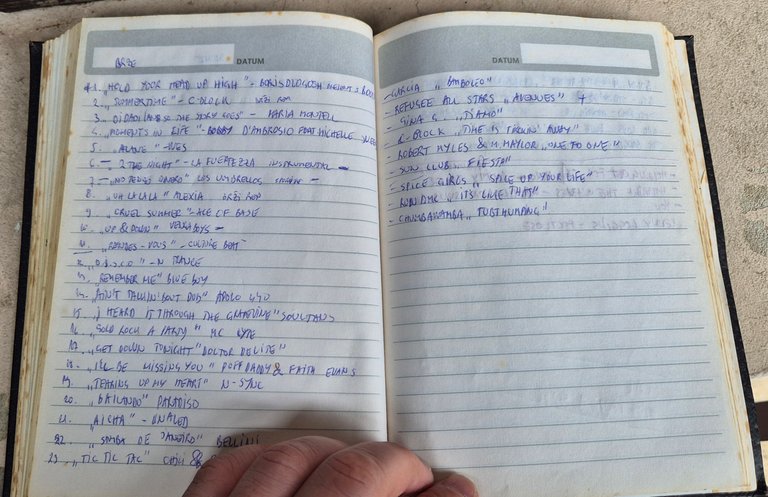 BRZE
DATUM
1. „HOLD YOUR HEAD UP HIGH" - BORIS DLUGOSH
2. „SUMMERTIME" - C-BLOCK
3. SO THE STORY GOES" - MARIA MONTELL
4. „MOMENTS IN LIFE" - BOBBY D'AMBROSIO FEAT MICHELLE
5. - YVES
6. - „2 THE NIGHT" - LA FUERTEZZA INSTRUMENTAL -
7. - „NO TENGO DINERO" LOS UMBRELLOS
8. „UH LA LA LA" ALEXIA
9. „CRUEL SUMMER" - ACE OF BASE
10. „UP & DOWN" VENGABOYS -
11. „RENDES - VOUS" - CULTURE BEAT
12. „D.I.S.C.O" - N TRANCE
13. „REMEMBER ME" BLUE BOY
14. „AIN'T TALKIN' BOUT DUB" APOLO 440
15. „I HEARD IT THROUGH THE GRAPEVINE" SOULTANS
16. „COLD ROCK A PARTY" MC LYTE
17. „GET DOWN TONIGHT" DOCTOR DELITE"
18. „I'LL BE MISSING YOU" PUFF DADDY & FAITH EVANS
19. „TEARING UP MY HEART" N-SYNC
20. „BAILANDO" PARADISO
21. „AICHA" - KHALED
22. „SOMBA DE JANEIRO" BELLINI
23. „TIC TIC TAC" CHILI &
DATUM
- GARCIA „BAMBOLEO"
- REFUGEE ALL STARS „AVENUES" +
- GINA G „TI AMO"
- C-BLOCK „TIME IS TICKIN' AWAY"
- ROBERT MYLES & M. MAYLOR „ONE TO ONE"
- SUN CLUB „FIESTA"
- SPICE GIRLS „SPICE UP YOUR LIFE"
- RUN DMC „ITS LIKE THAT"
- CHUMBAWAMBA „TUBTHUMPING"